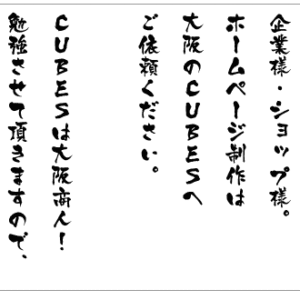 企業様・ショップ様。
ホームページ制作は
大阪のCUBESへ
ご依頼ください。
CUBESは大阪商人！
勉強させて頂きますので、